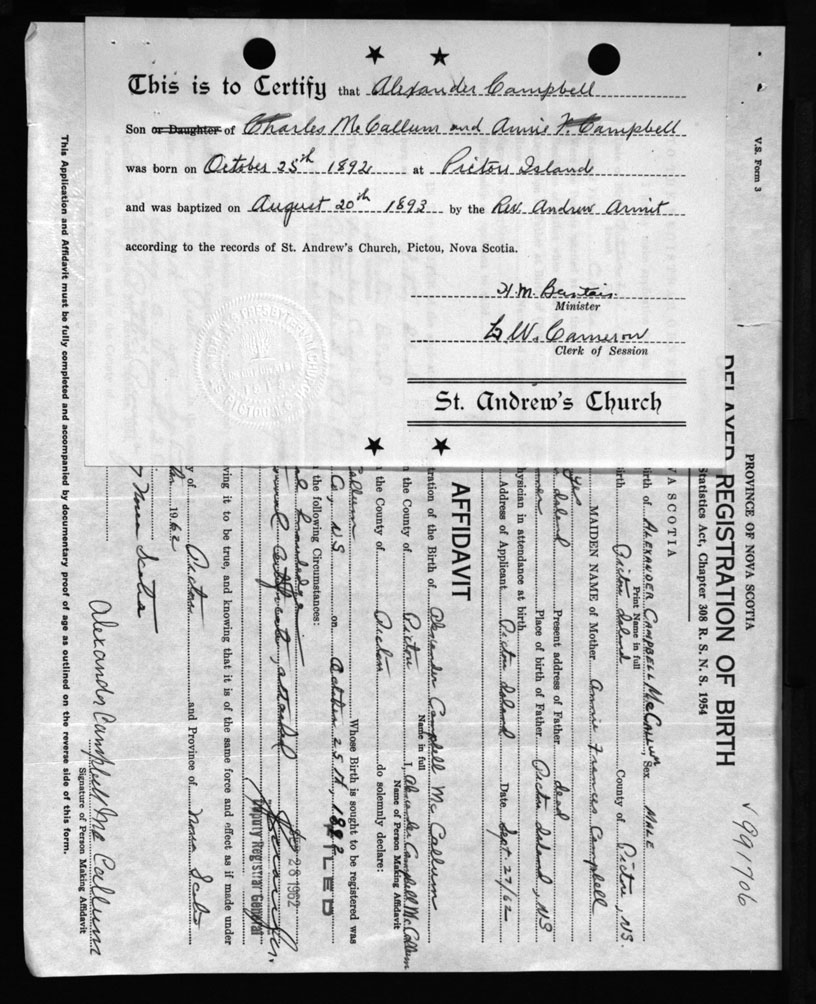 This is to Certify that Alexander Campbell
Son or Daughter of Charles McCallum and Annie F. Campbell
was born on October 25th 1892 at Pictou Island
and was baptized on August 20th 1893 by the Rev. Andrew Armit
according to the records of St. Andrew's Church, Pictou, Nova Scotia.
Minister
W. Cameron
Clerk of Session
St. Andrew's Church
V.S. Form 3
991706
PROVINCE OF NOVA SCOTIA
DELAYED REGISTRATION OF BIRTH
Statistics Act, Chapter 308 R. S. N. S. 1954
VA SCOTIA
Birth of ALEXANDER CAMPBELL McCALLUM, Sex MALE
Print Name in full
Birth Pictou Island County of Pictou, N.S.
MAIDEN NAME of Mother Annie Frances Campbell
yes
Island Present address of Father dead
Place of birth of Father Pictou Island, NS
hysician in attendance at birth
Address of Applicant Pictou Island Date Sept. 27/62
AFFIDAVIT
tration of the Birth of Alexander Campbell McCallum
Name in full
n the County of Pictou I, Alexander Campbell McCallum
Name of Person Making Affidavit
n the County of Pictou do solemnly declare:
Callum Whose Birth is sought to be registered was
Co, N.S on October 25th, 1892
n the following Circumstances:
FILED
28 1962
attached
Deputy Registrar General
ving it to be true, and knowing that it is of the same force and effect as if made under
y of Pictou and Province of Nova Scotia
1962
Nova Scotia
Alexander Campbell McCallum
Signature of Person Making Affidavit
This Application and Affidavit must be fully completed and accompanied by documentary proof of age as outlined on the reverse side of this form.